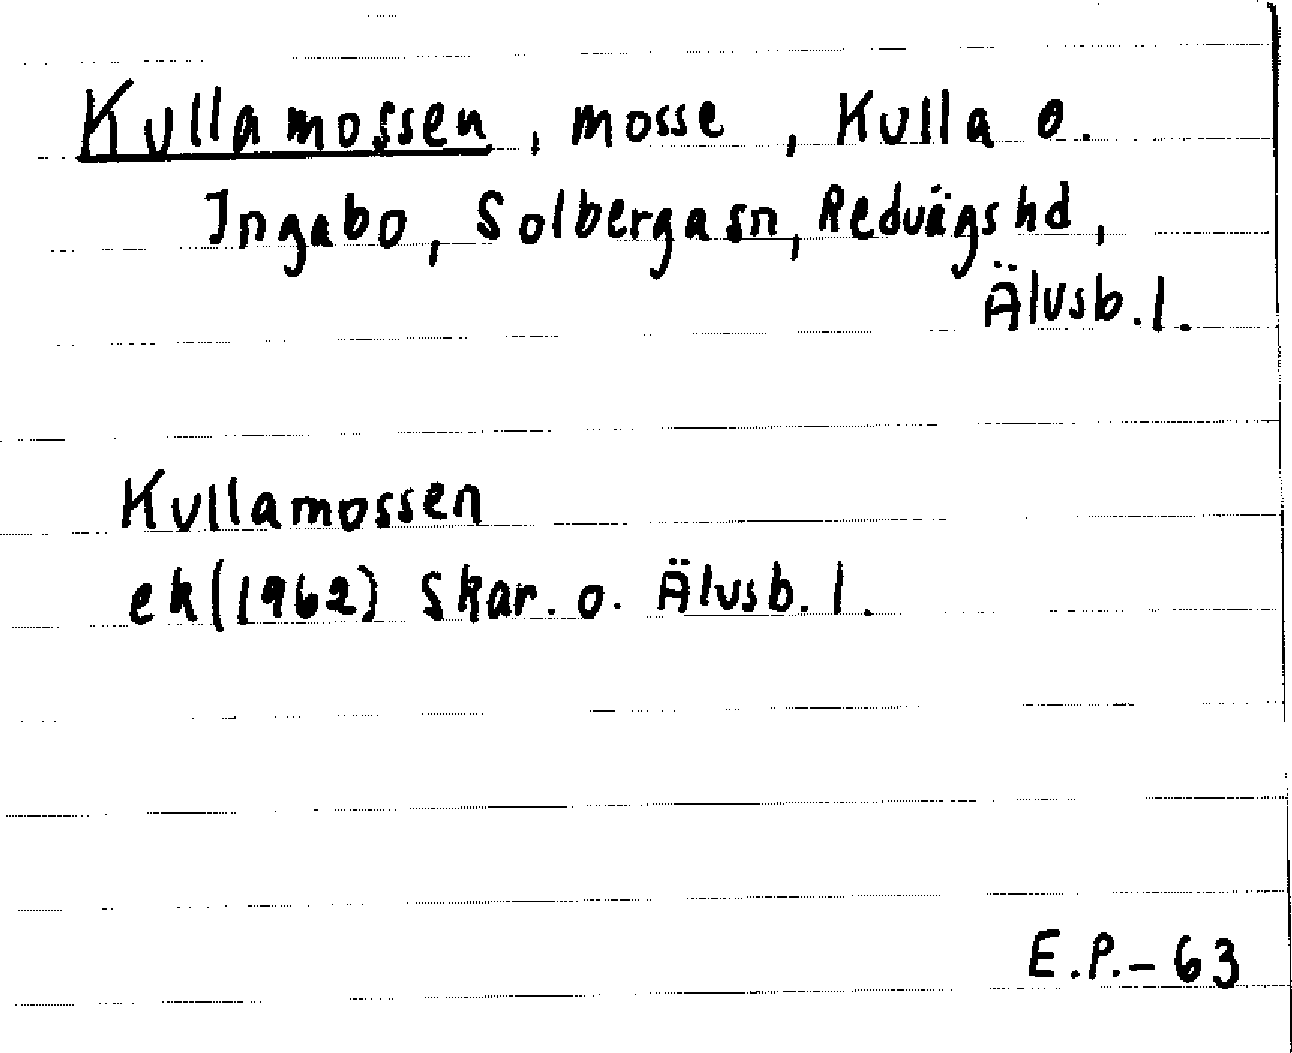 Kullamossen, mosse, Kulla o.
Ingabo, Solberga sn, Redvägs hd,
Älvsb. l.
Kullamossen
ek (1962) Skar. o. Älvsb. l.
E.P.-63